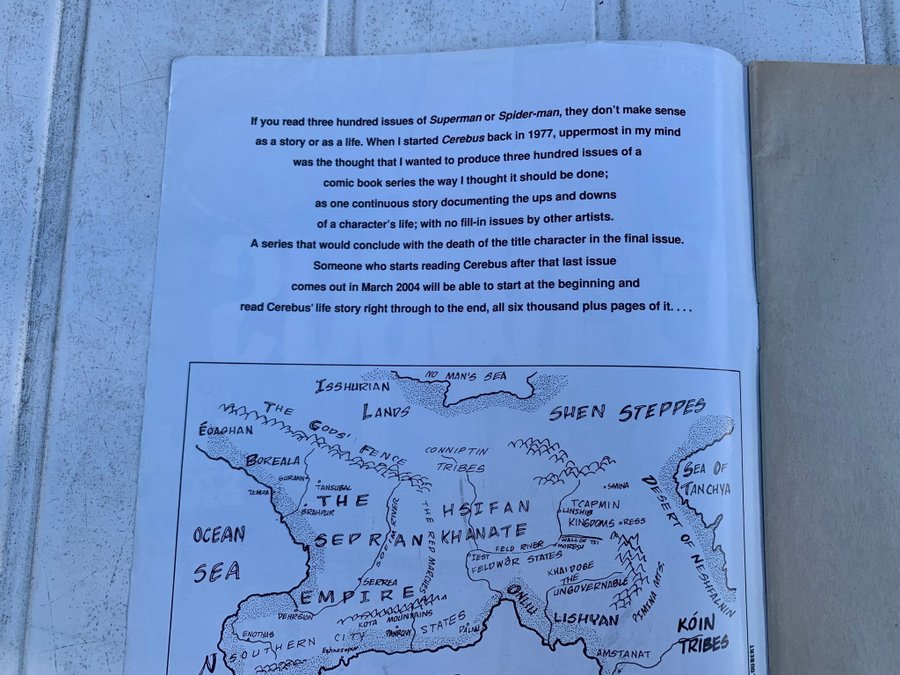 If you read three hundred issues of Superman or Spider-man, they don't make sense
as a story or as a life. When I started Cerebus back in 1977, uppermost in my mind
was the thought that I wanted to produce three hundred issues of a
comic book series the way I thought it should be done;
as one continuous story documenting the ups and downs
of a character's life; with no fill-in issues by other artists.
A series that would conclude with the death of the title character in the final issue.
Someone who starts reading Cerebus after that last issue
comes out in March 2004 will be able to start at the beginning and
read Cerebus' life story right through to the end, all six thousand plus pages of it. . . .
NO MAN'S SEA
ISSHURIAN
LANDS
SHEN STEPPES
THE
GODS'
FENCE
EOAGHAN
CONNIPTIN
TRIBES
BOREALA
SEA OF
TANCHYA
TANSUBAL
THE
BRAHPUR
HSIFAN
KHANATE
TCAPMIN
KINGDOMS
RESS
DESERT OF NESHFALNIN
OCEAN
SEA
SEPRAN
EMPIRE
THE RED MARCHES
IEST
FELD RIVER
FELDWAR STATES
WALL OF TSI
KHAIDOSE
THE
UNGOVERNABLE
SERREA
ONLIU
LISHYAN
KÓIN
TRIBES
KOTA MOUNTAINS
ENOTHIS
SOUTHERN CITY STATES
AMSTANAT